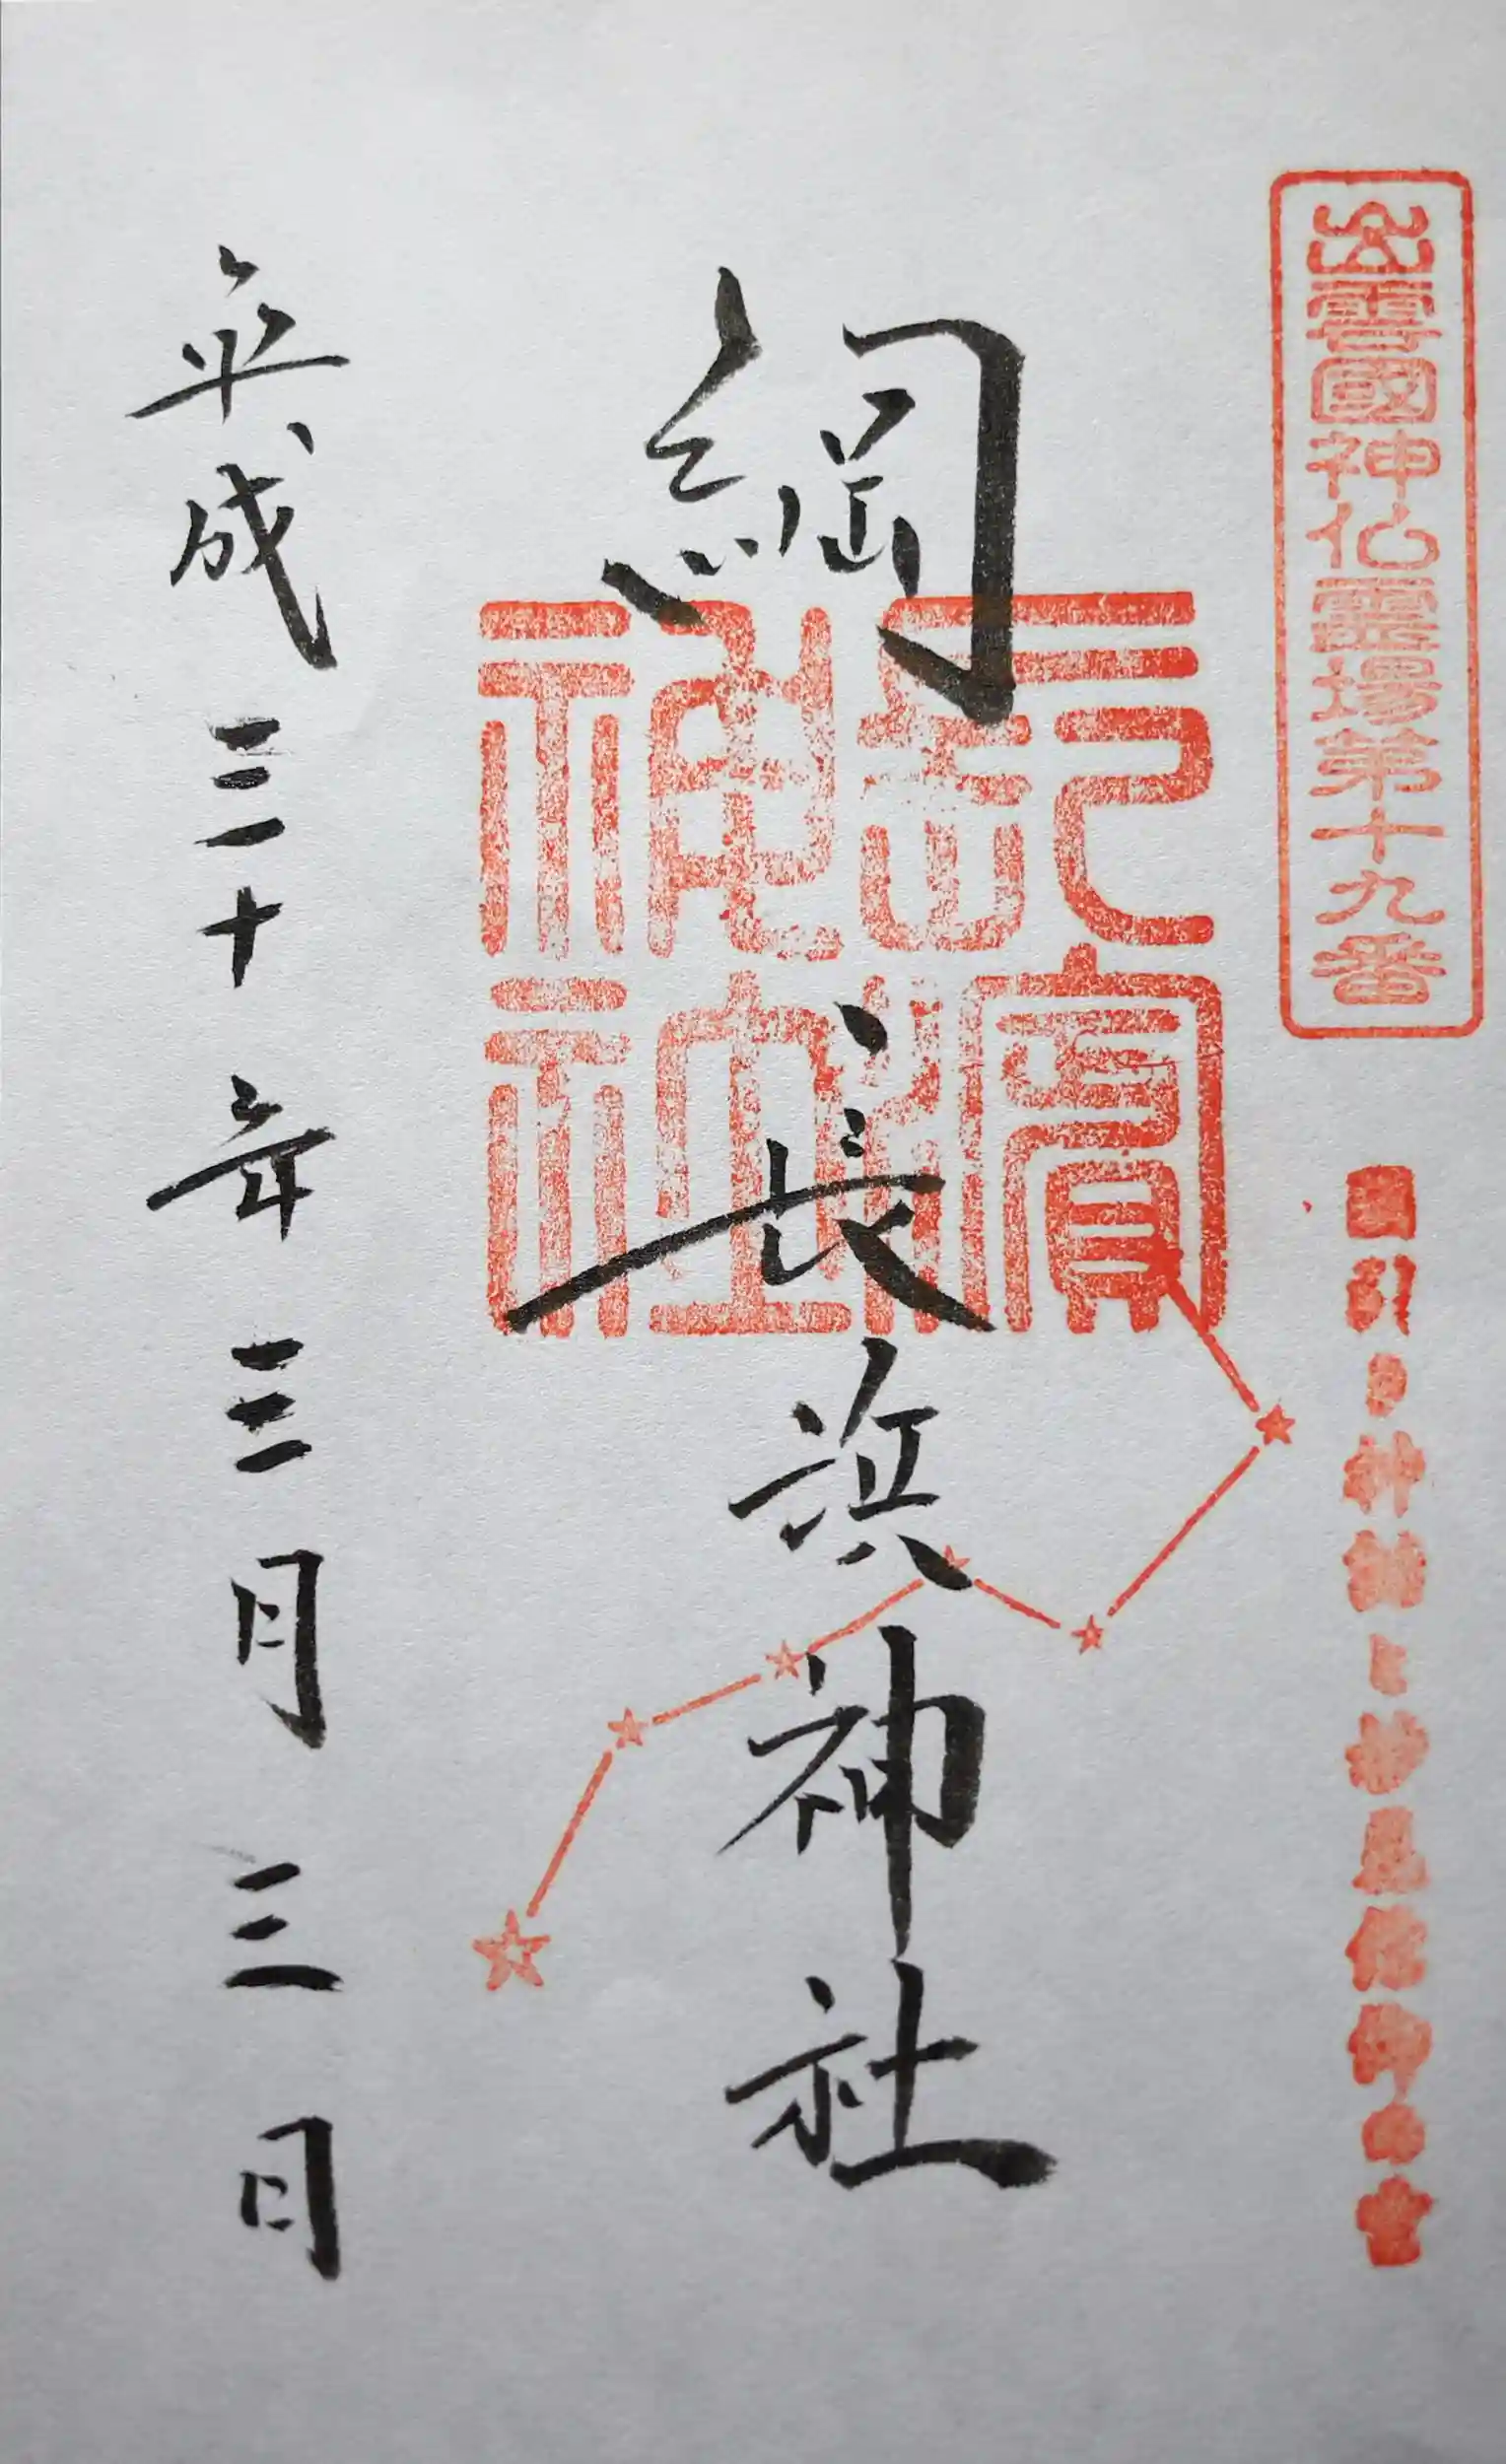 出雲國神仏霊場第十九番
國引き神話と妙見信仰の宮
綱
長浜神社
長濱神社
平成三十年三月三日